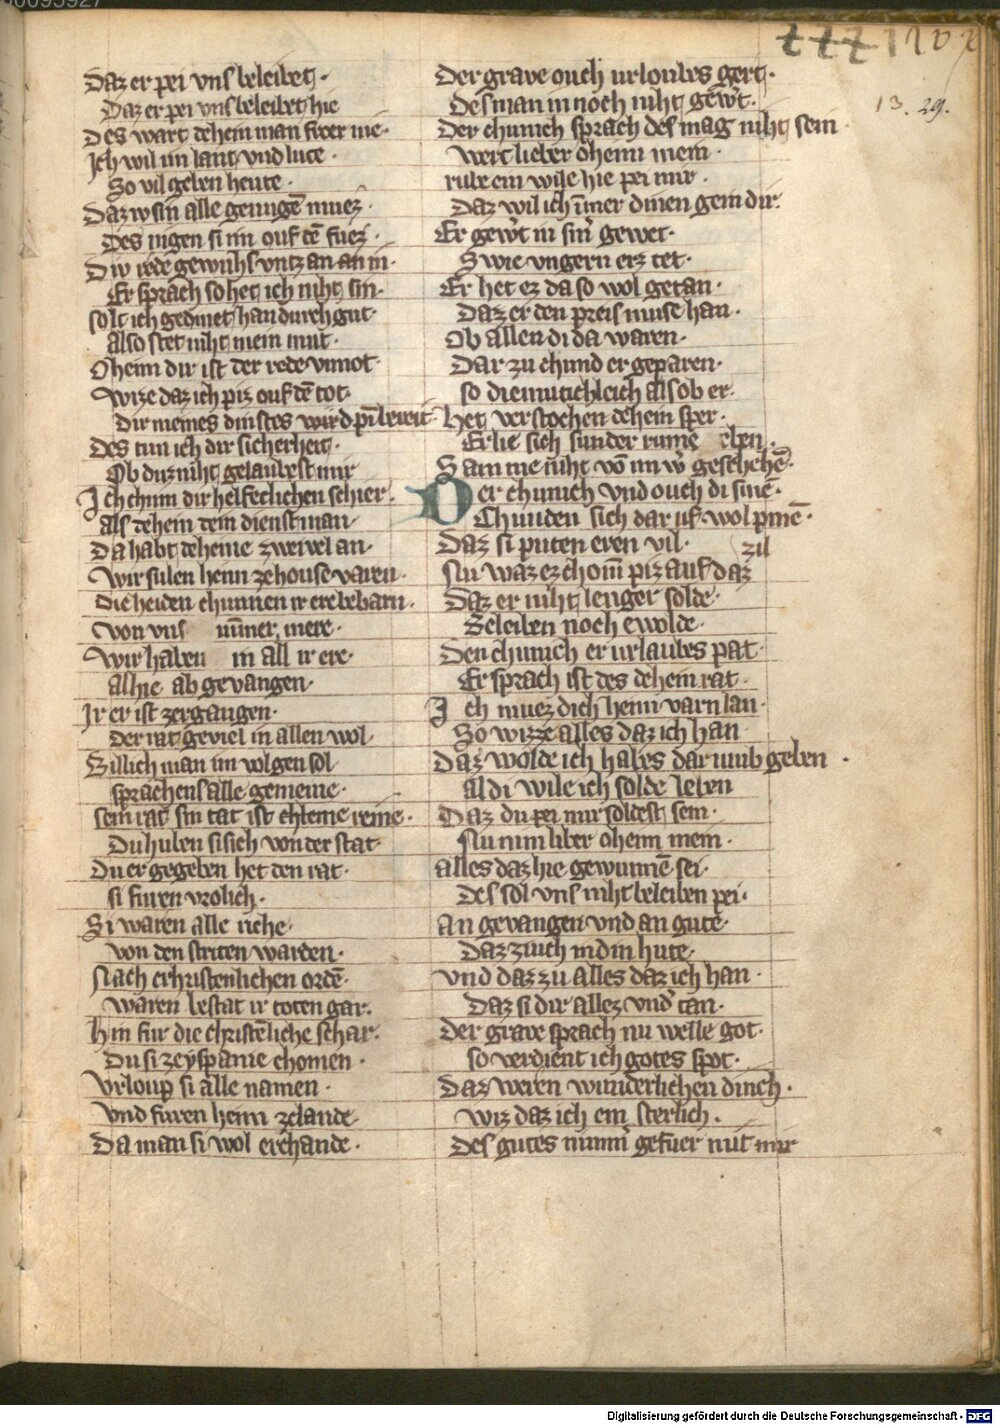 Daz er pei vns beleibet ·
Daz er pei vns beleibet hie
Des wart dehein man swer nie ·
Ich wil im lant vnd lute ·
So vil geben heute ·
Daz wͦ sin alle genugē muez ·
Des nigen si im ouf dē fuez ·
Div rede gewuhs vntz an an in ·
Er sprach so het ich niht sin ·
solt ich gedinet han durch gut ·
also stet niht mein mut ·
Oheim dir ist der rede vnnot ·
Wize daz ich piz ouf dē tot ·
Dir meines dinstes wird pīn bereit
Des tun ich dir sicherheit ·
Ob duz niht gelaubest mir
Ich chum dir helfechlichen schier ·
als dehein dein dienstman ·
Da habt deheine zweivel an ·
Wir sulen heim ze house varen ·
Die heiden chunnen ir ere bebarn ·
Von vns nūmer mere ·
Wir haben in all ir ere ·
alhie ab gevangen ·
Ir er ist zergangen ·
Der rat geviel in allen wol ·
Billich man im volgen sol
sprachens alle gemeine ·
sein rat sin tat ist chleine reine ·
Du huben si sich von der stat
Du er gegeben het den rat ·
si furen vrolich ·
Si waren alle riche ·
von den striten warden ·
Nach christenlichen ordē ·
waren bestat ir toten gar ·
Hin fur die christēliche schar ·
Du si ze yspanie chomen ·
Vrloup si alle namen ·
Vnd furen heim zelande
Da man si wol erchande ·
Der grave ouch urloubes gert ·
Des man in noch niht gewͦt ·
Der chunich sprach des mag niht sein ·
Wert lieber oheim mein ·
rube ein wile hie pei mir ·
Daz wil ich īmer dinen gein dir ·
Er gewͦt in sinͦ gewer ·
Swie vngern erz tet ·
Er het ez da so wol getan ·
Daz er den preis muse han ·
Ob allen di da waren ·
Dar zu chund er geparen ·
so diemutichleich als ob er ·
Het verstochen dehein sper ·
Er lie sich sunder rume eben ·
Sam nie niht vō im wͦ geschehē ·
Der chunich vnd ouch di sinē ·
Chunden sich dar uf wol pinē ·
Daz si puten eren vil · zil
Nu waz ez chom piz auf daz
Daz er niht lenger solde ·
Beleiben noch ewolde ·
Den chunich er urlaubes pat ·
Er sprach ist des dehein rat ·
Ich muez dich heim varn lan ·
So wizze alles daz ich han
Daz wolde ich halbes dar umb geben ·
al di wile ich solde leben
Daz du pei mir soldest sein ·
Nu nim liber oheim mein ·
alles daz hie gewunnē sei ·
Des sol vns niht beleiben pei ·
an gevangen vnd an gute ·
Daz ziuch in din hute ·
vnd daz zu alles daz ich han ·
Daz si dir allez vndͦ tan ·
Der grave sprach nu welle got ·
so verdient ich gotes spot ·
Daz weren wunderlichen dinch ·
wiz daz ich ein sterlich ·
Des gutes nimm gefuer mit mir
13 . 29 .
Digitalisierung gefördert durch die Deutsche Forschungsgemeinschaft - DFG